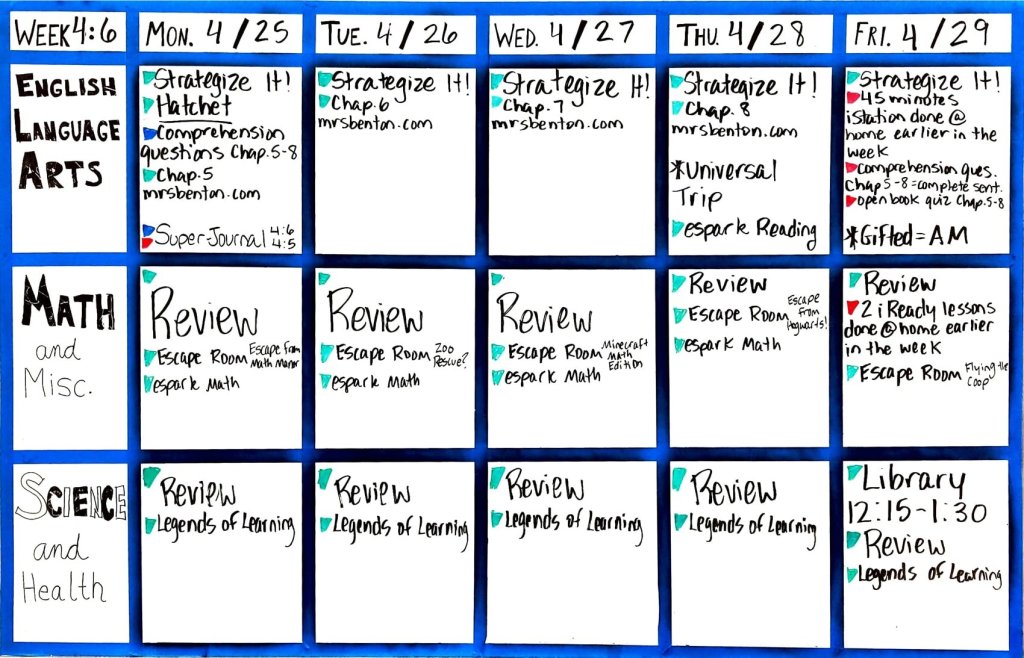 WEEK 4:6
MON. 4/25
TUE. 4/26
WED. 4/27
THU. 4/28
FRI. 4/29
ENGLISH
LANGUAGE
ARTS
Strategize It!
Hatchet
Comprehension
questions Chap. 5-8
Chap. 5
mrsbenton.com
Super Journal 4:6
4:5
Strategize It!
Chap. 6
mrsbenton.com
Strategize It!
Chap. 7
mrsbenton.com
Strategize It!
Chap. 8
mrsbenton.com
*Universal
Trip
espark Reading
Strategize It!
45 minutes
istation done @
home earlier in the
week
comprehension ques.
Chap 5-8 = complete sent.
open book quiz Chap. 5-8
*Gifted = AM
MATH
and
Misc.
Review
Escape Room Escape from
Math Manor
espark Math
Review
Escape Room Zoo
Rescue?
espark Math
Review
Escape Room Minecraft
Math
Edition
espark Math
Review
Escape Room Escape
from
Hogwarts!
espark Math
Review
2 iReady lessons
done @ home earlier
in the week
Escape Room Flying the
Coop
SCIENCE
and
Health
Review
Legends of Learning
Review
Legends of Learning
Review
Legends of Learning
Review
Legends of Learning
Library
12:15-1:30
Review
Legends of Learning